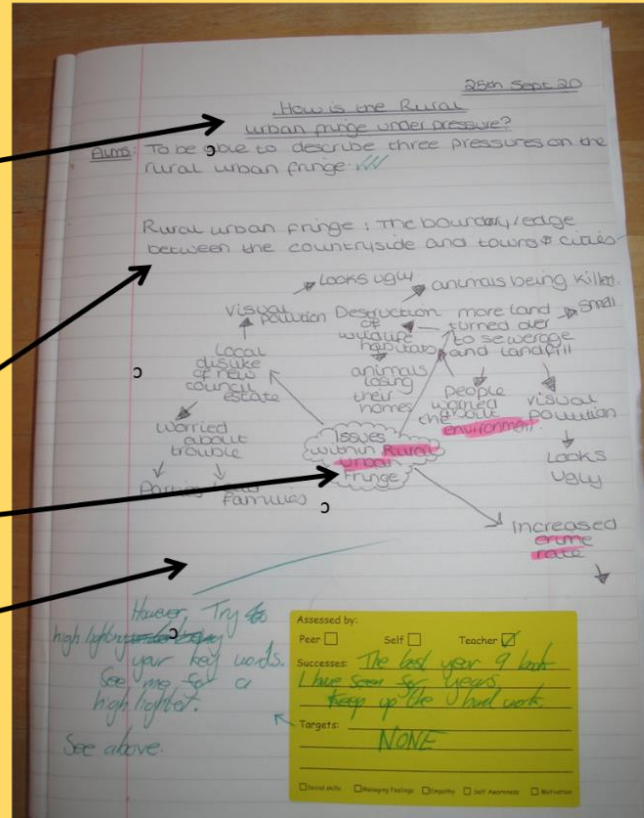 25th Sept 20
How is the Rural
urban fringe under pressure?
Aims: To be able to describe three pressures on the
rural urban fringe.
Rural urban fringe: The boundary/edge
between the countryside and towns & cities
Looks ugly
animals being killed.
visual
pollution
Destruction
of
wildlife
habitats
more land
turned over
to sewerage
and landfill
smell
Local
dislike
of new
council
estate
animals
losing
their
homes
people
worried
about
the
environment.
visual
pollution
worried
about
trouble
Issues
within Rural
urban
fringe
Looks
ugly
Parties
families
Increased
crime
rate
However, Try
highlighting
your key words.
See me for a
highlighter.
See above.
Assessed by:
Peer Self Teacher
Successes: The best year 9 book
I have seen for years
Keep up the hard work.
Targets:
NONE
Social skills Managing Feelings Empathy Self Awareness Motivation